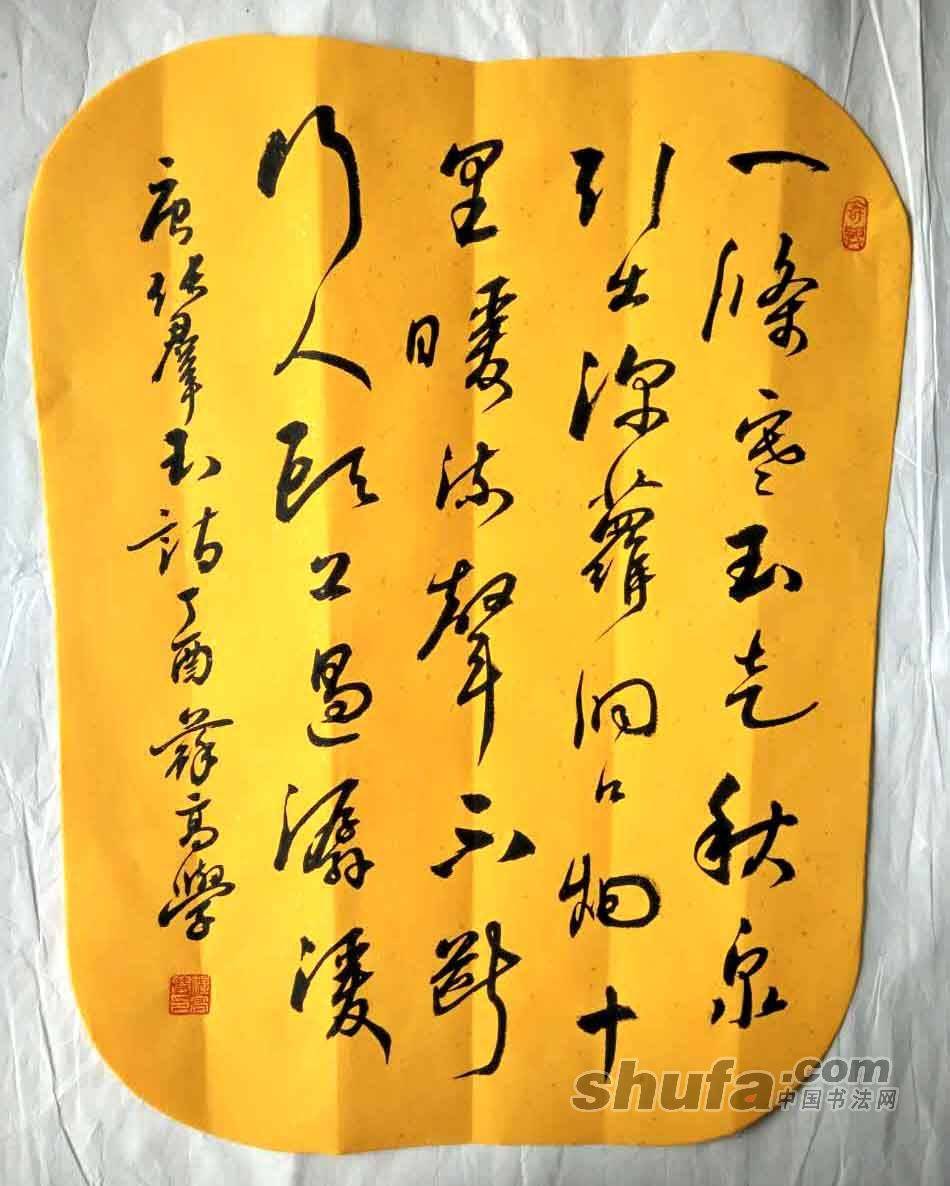 一條寒玉走秋泉
引出深蘿洞口烟十
里暖流聲不斷
行人頭上過潺湲
唐張羣玉詩丁酉薛高學
shufa.com
中国书法网